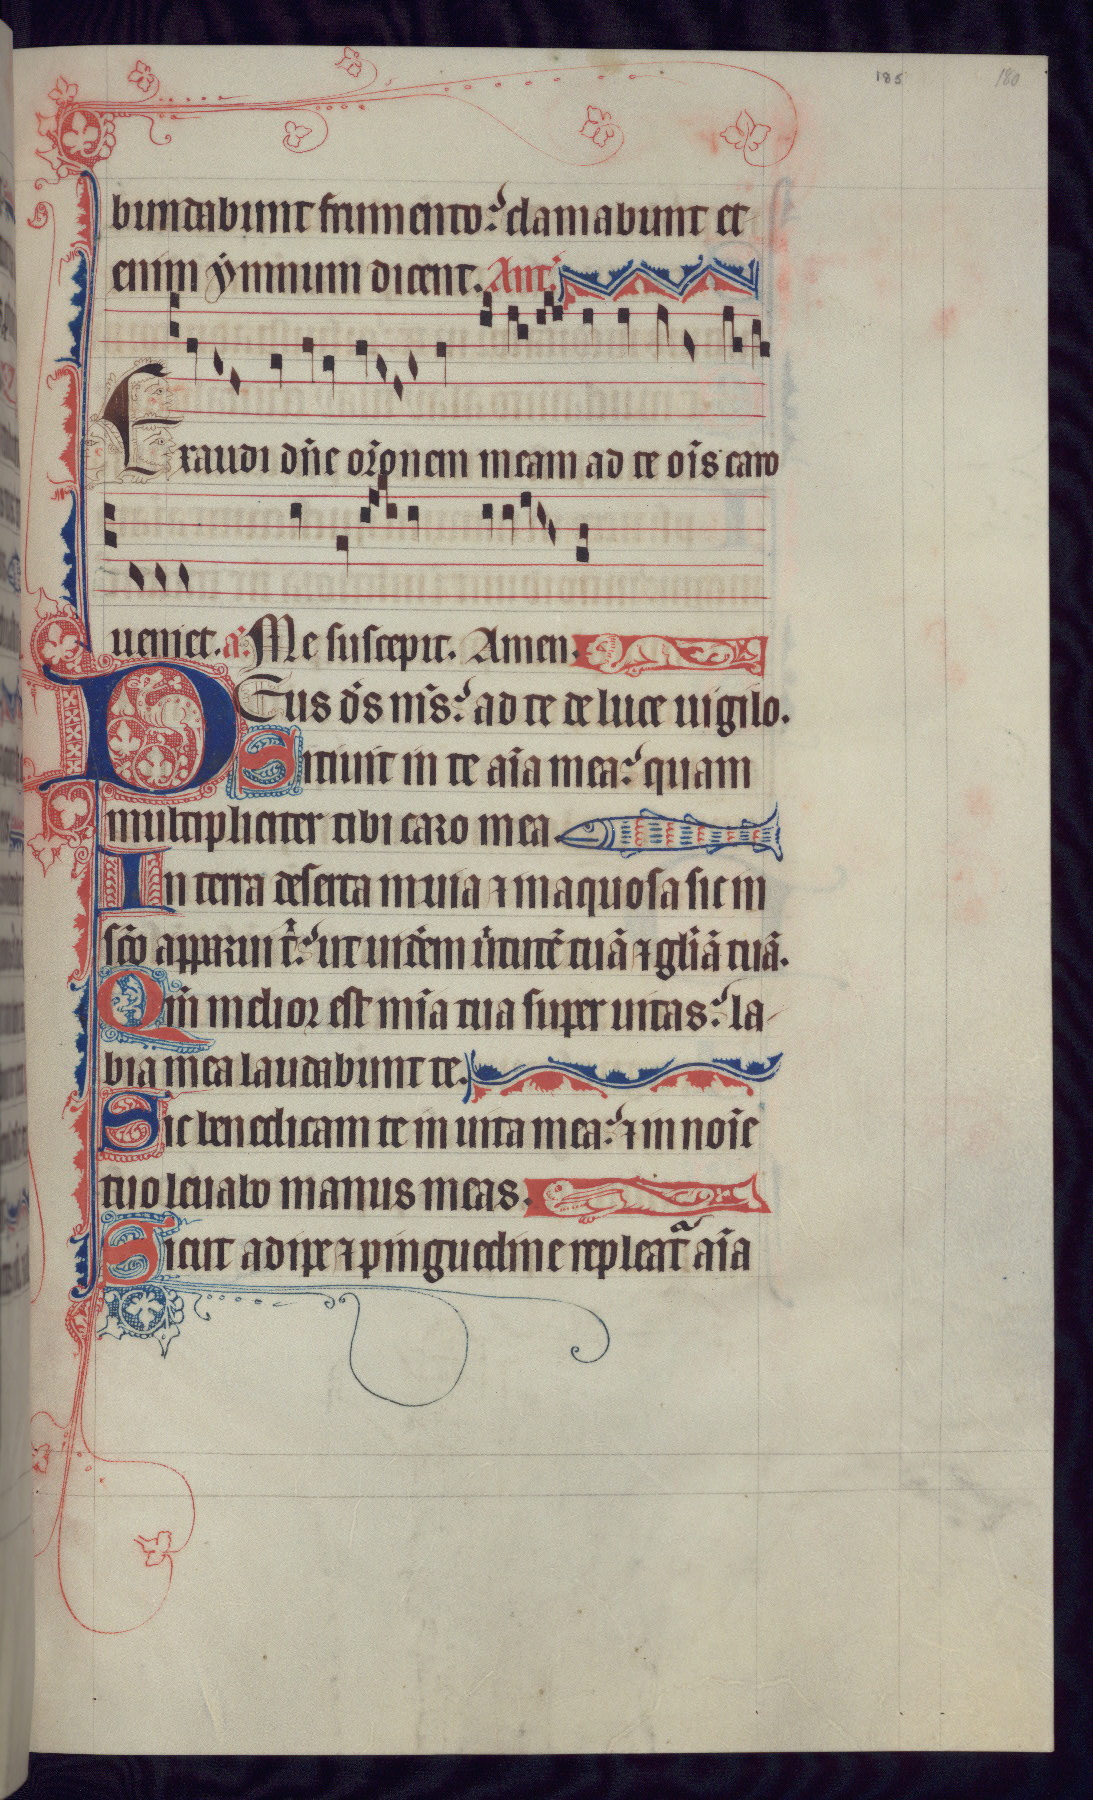 185 180
bundabunt frumento: clamabunt et
enim ẏmnum dicent. Ant.
Exaudi dñe or̄onem meam ad te oīs caro
veniet. a. Me suscepit. Amen.
DEus d̄s m̄s: ad te de luce uigilo.
Sitiuit in te aīa mea: quam
multipliciter tibi caro mea.
In terra deserta inuia ⁊ inaquosa sic in
sc̄o apparui t̄: ut uiderem u̓tutē tuā ⁊ gl̄iā tuā.
Qm̄ melior est mīa tua super uitas: la-
bia mea laudabunt te.
Sic benedicam te in uita mea: ⁊ in noīe
tuo leuabo manus meas.
Sicut adipe ⁊ pinguedine repleat᷑ aīa